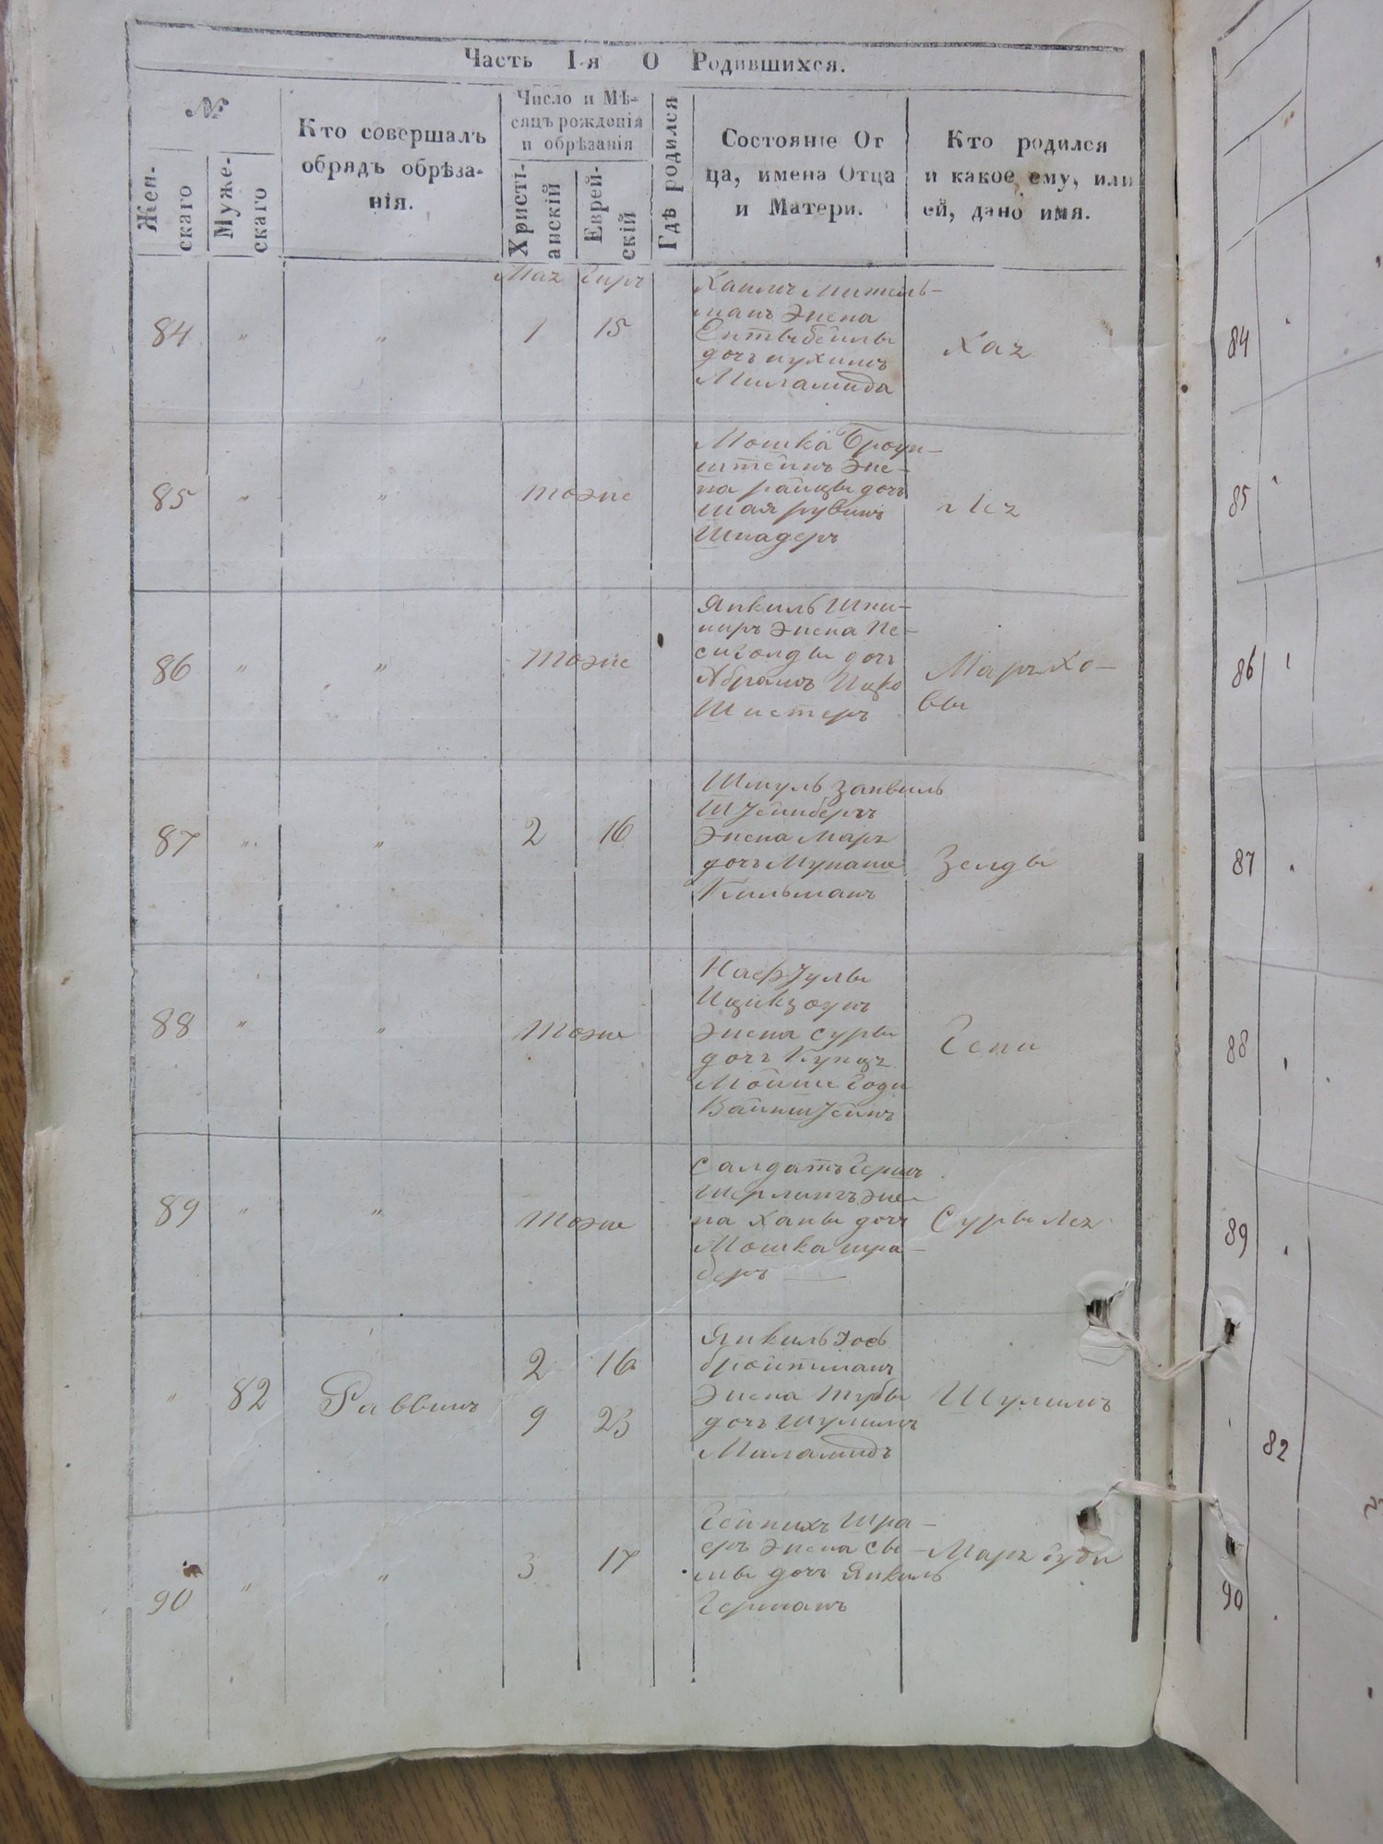 Часть I-я О Родившихся.
№
Жен-
скаго
Муже-
скаго
Кто совершалъ
обрядъ обрѣза-
нія.
Число и Мѣ-
сяцъ рожденія
и обрѣзанія
Христі-
анскій
Еврей-
скій
Гдѣ родился
Состояніе От
ца, имена Отца
и Матери.
Кто родился
и какое ему, или
ей, дано имя.
84 " " 1 15
Хаимъ Митель-
манъ жена
дочь Нухимъ
Миламида
Хая
85 " " тоже
Мошка Броун-
штейнъ же-
на райцы дочь
шая рувинъ
Шнадеръ
Лея
86 " " тоже
Янкиль Шни-
тиръ жена Пе-
сиголды дочь
Абрамъ Ицко
Шистеръ
Маръ Хо-
вы
87 " " 2 16
Шмуль Занвиль
Штейнберъ
жена Маря
дочь Мунаше
Кильманъ
Зелды
88 " " тоже
Нафтулы
жена суры
дочь Купца
Мойши Годи
Вайнштейнъ
Гени
89 " " тоже
Салдатъ Гершъ
Шерлингъ же-
на Ханы дочь
Мошка шра-
беръ
Суры Лея
" 82 Раввинъ 2 16
9 23
Янкиль Хось
бройтманъ
жена Тубы
дочь Шулимъ
Миламидъ
Шулимъ
90 " " 3 17
Гейнихъ Шра-
еръ жена сы-
мы дочь Янкиль
Германъ
Маря Гуди
84
85
86
87
88
89
82
90